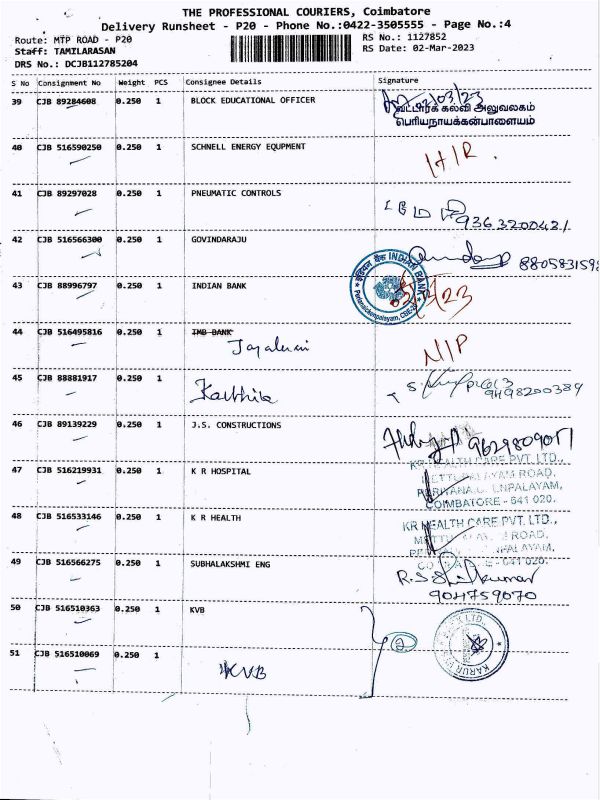 THE PROFESSIONAL COURIERS, Coimbatore
Delivery Runsheet - P20 - Phone No.:0422-3505555 - Page No.:4
Route: MTP ROAD - P20
RS No.: 1127852
Staff: TAMILARASAN
RS Date: 02-Mar-2023
DRS No.: DCJB112785204
S No Consignment No Weight PCS Consignee Details Signature
39 CJB 89284608 0.250 1 BLOCK EDUCATIONAL OFFICER
02/03/23
வட்டாரக் கல்வி அலுவலகம்
பெரியநாயக்கன்பாளையம்
40 CJB 516590250 0.250 1 SCHNELL ENERGY EQUPMENT
41 CJB 89297028 0.250 1 PNEUMATIC CONTROLS
9363200421
42 CJB 516566300 0.250 1 GOVINDARAJU
43 CJB 88996797 0.250 1 INDIAN BANK
INDIAN BANK
44 CJB 516495816 0.250 1 IMB BANK
N/P
45 CJB 88881917 0.250 1 Karthik
9498200389
46 CJB 89139229 0.250 1 J.S. CONSTRUCTIONS
47 CJB 516219931 0.250 1 K R HOSPITAL
KR HEALTH CARE PVT. LTD.,
COIMBATORE - 641 020.
48 CJB 516533146 0.250 1 K R HEALTH
KR HEALTH CARE PVT. LTD.,
49 CJB 516566275 0.250 1 SUBHALAKSHMI ENG
904759070
50 CJB 516510363 0.250 1 KVB
51 CJB 516510069 0.250 1 KVB